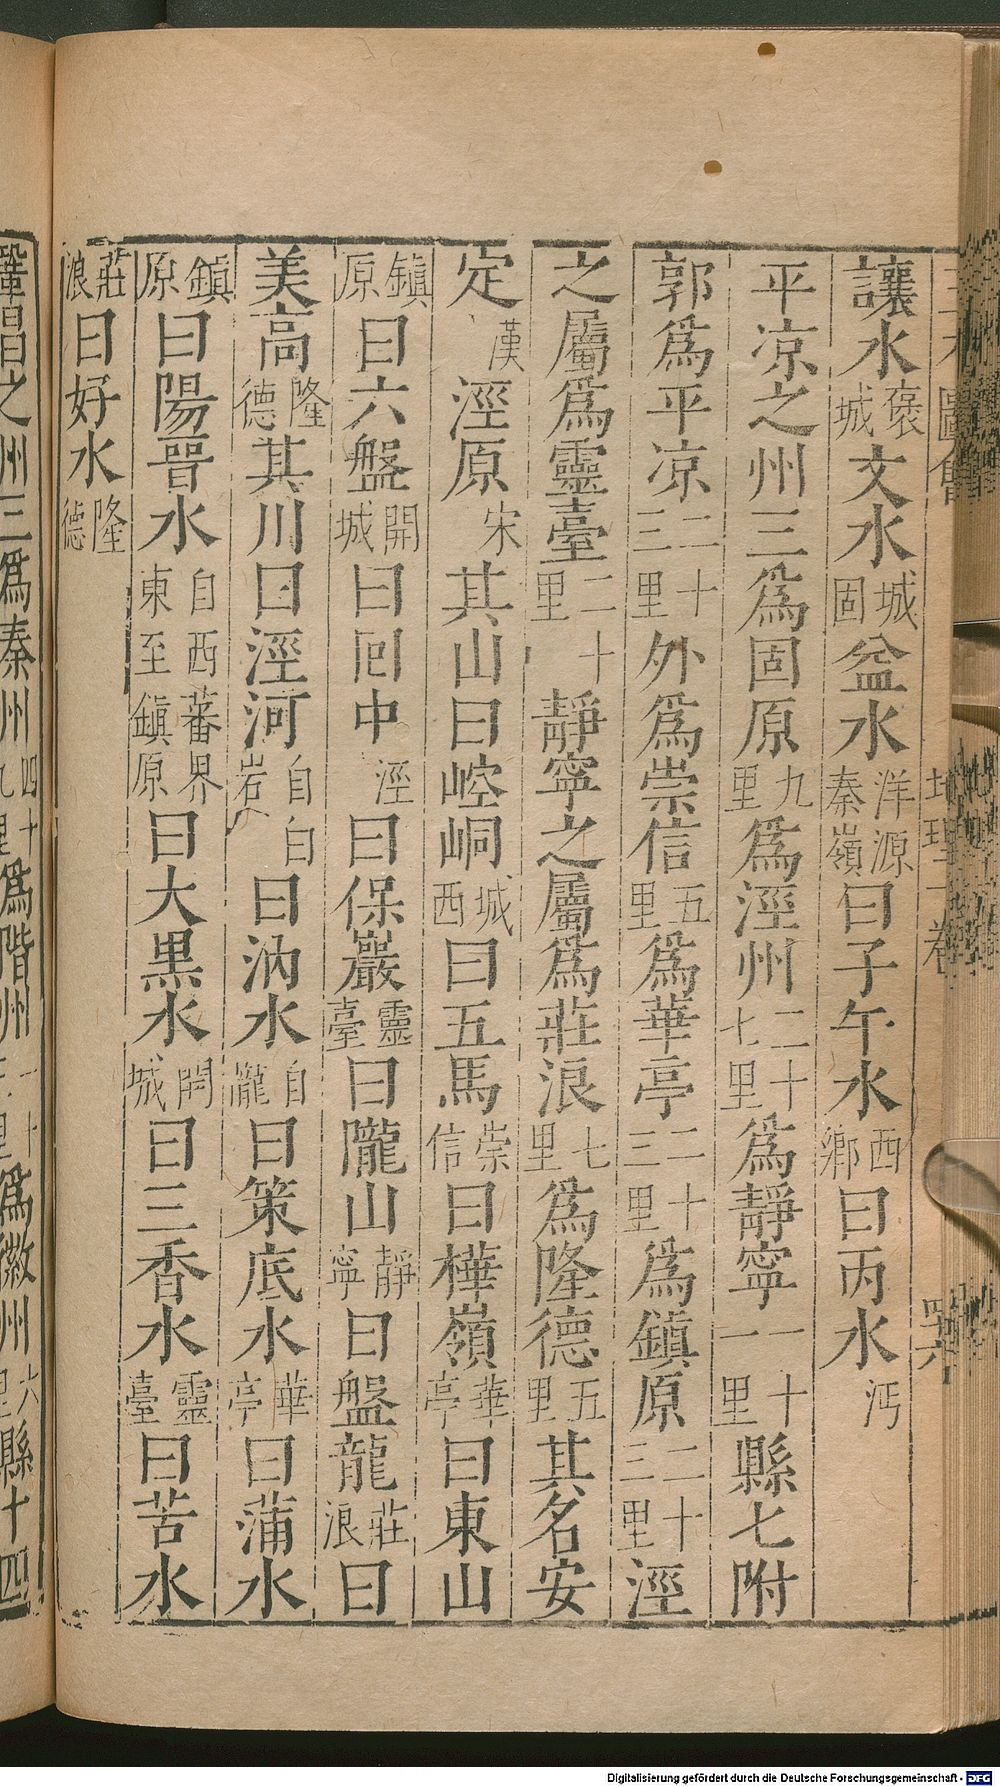 讓水褒城文水城固盆水洋源秦嶺曰子午水西鄉曰丙水沔
平凉之州三爲固原九里爲涇州二十七里爲靜寧一十一里縣七附
郭爲平凉二十三里外爲崇信五里爲華亭二十三里爲鎮原二十三里涇
之屬爲靈臺二十里靜寧之屬爲莊浪七里爲隆德五里其名安
定漢涇原宋其山曰崆峒城西曰五馬崇信曰樺嶺華亭曰東山
鎮原曰六盤開城曰回中涇曰保巖靈臺曰隴山靜寧曰盤龍莊浪曰
美高隆德其川曰涇河自白岩曰汭水自隴曰策底水華亭曰蒲水
鎮原曰陽晉水自西蕃界東至鎮原曰大黒水開城曰三香水靈臺曰苦水
莊浪曰好水隆德
鞏昌之州三爲秦州四十九里爲階州里爲徽州六里縣十四
Digitalisierung gefördert durch die Deutsche Forschungsgemeinschaft - DFG